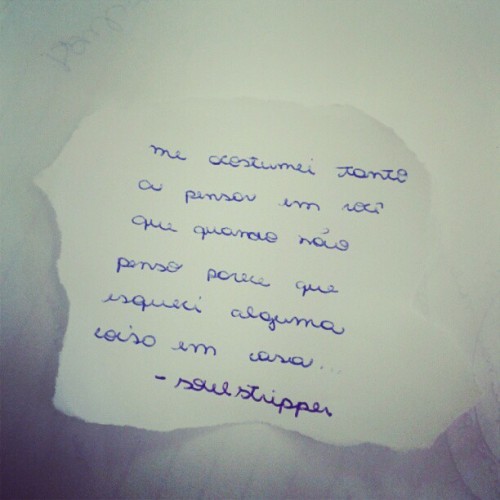 me acostumei tanto
a pensar em você
que quando não
penso parece que
esqueci alguma
coisa em casa...
- soulstripper